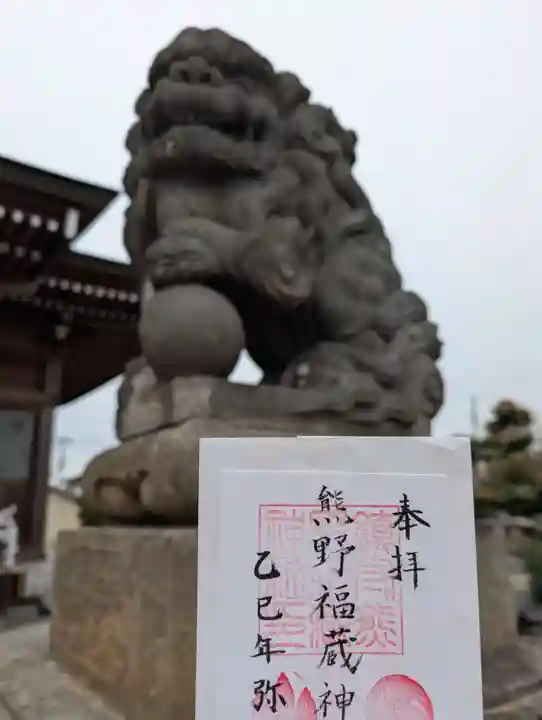 奉拝
熊野福蔵神
乙巳年弥